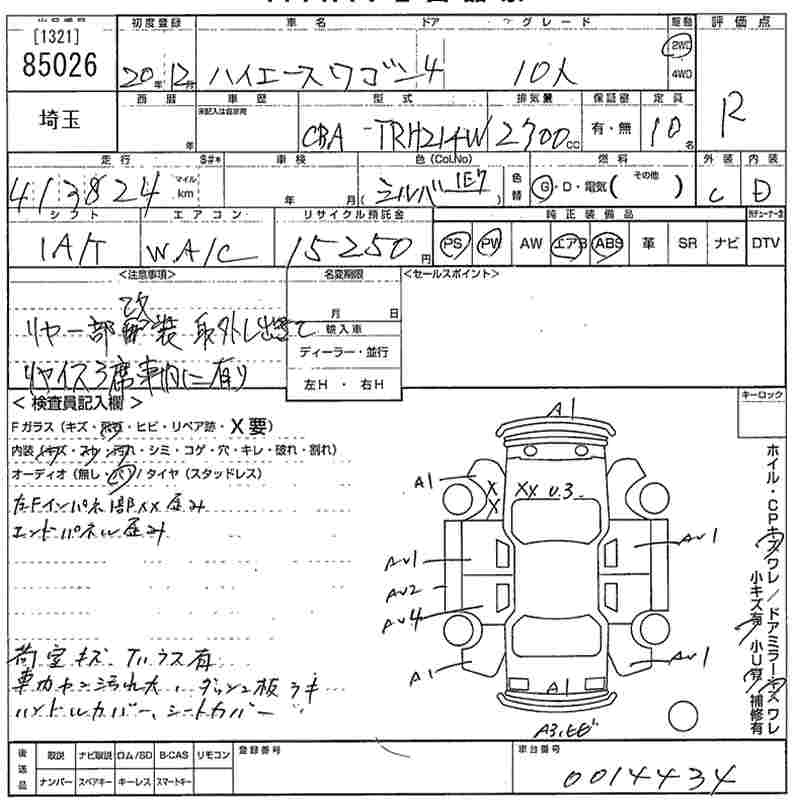 [1321]
85026
初度登録 車名 ドア グレード 駆動 評価点
20年 12月 ハイエースワゴン 4 10人 2WD
4WD
R
埼玉
西暦 車歴 型式 排気量 保証書 定員
未記入は自家用
年 CBA -TRH214W 2700cc 有・無 10名
走行 S#* 車検 色(Col,No) 燃料 外装 内装
413824 マイル km 年 月 シルバー 1E7 色替 G・D・電気( その他 ) C D
シフト エアコン リサイクル預託金 純正装備品
IA/T W.A/C 15250円 PS PW AW エアB ABS 革 SR ナビ DTV
<注意事項> 名変期限 <セールスポイント>
月 日
リヤ一部改装 取外し出きて
輸入車
ディーラー・並行
リヤイス3席車内に有り
左H・右H
<検査員記入欄> キーロック
Fガラス(キズ・飛石・ヒビ・リペア跡・X要)
内装(キズ・スレ・汚れ・シミ・コゲ・穴・キレ・破れ・割れ)
オーディオ(無し・バリ)/タイヤ(スタッドレス)
左Fインパネ部XX歪み
エンドパネル歪み
荷室キズ、
有
車内ヤニ汚れ大、ダッシュ板うキ
ハンドルカバー、シートカバー
A1
A1 X X XX U.3
AU1 AU1
AU2
AU4
A1 AU1
A1
A3,ヒビ
ホイル・CPキズワレ/ドアミラーキズワレ
小キズ有 小U有 補修有
後送品 取説 ナビ取説 ロム/SD B-CAS リモコン 登録番号 車台番号
ナンバー スペアキー キーレス スマートキー 0014434